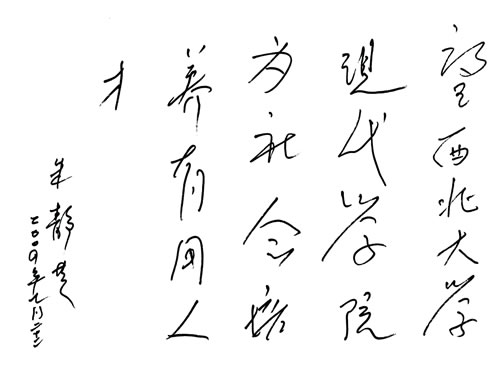 望西北大学
现代学院
为社会培
养有用人
才
朱静芝
二〇〇九年七月